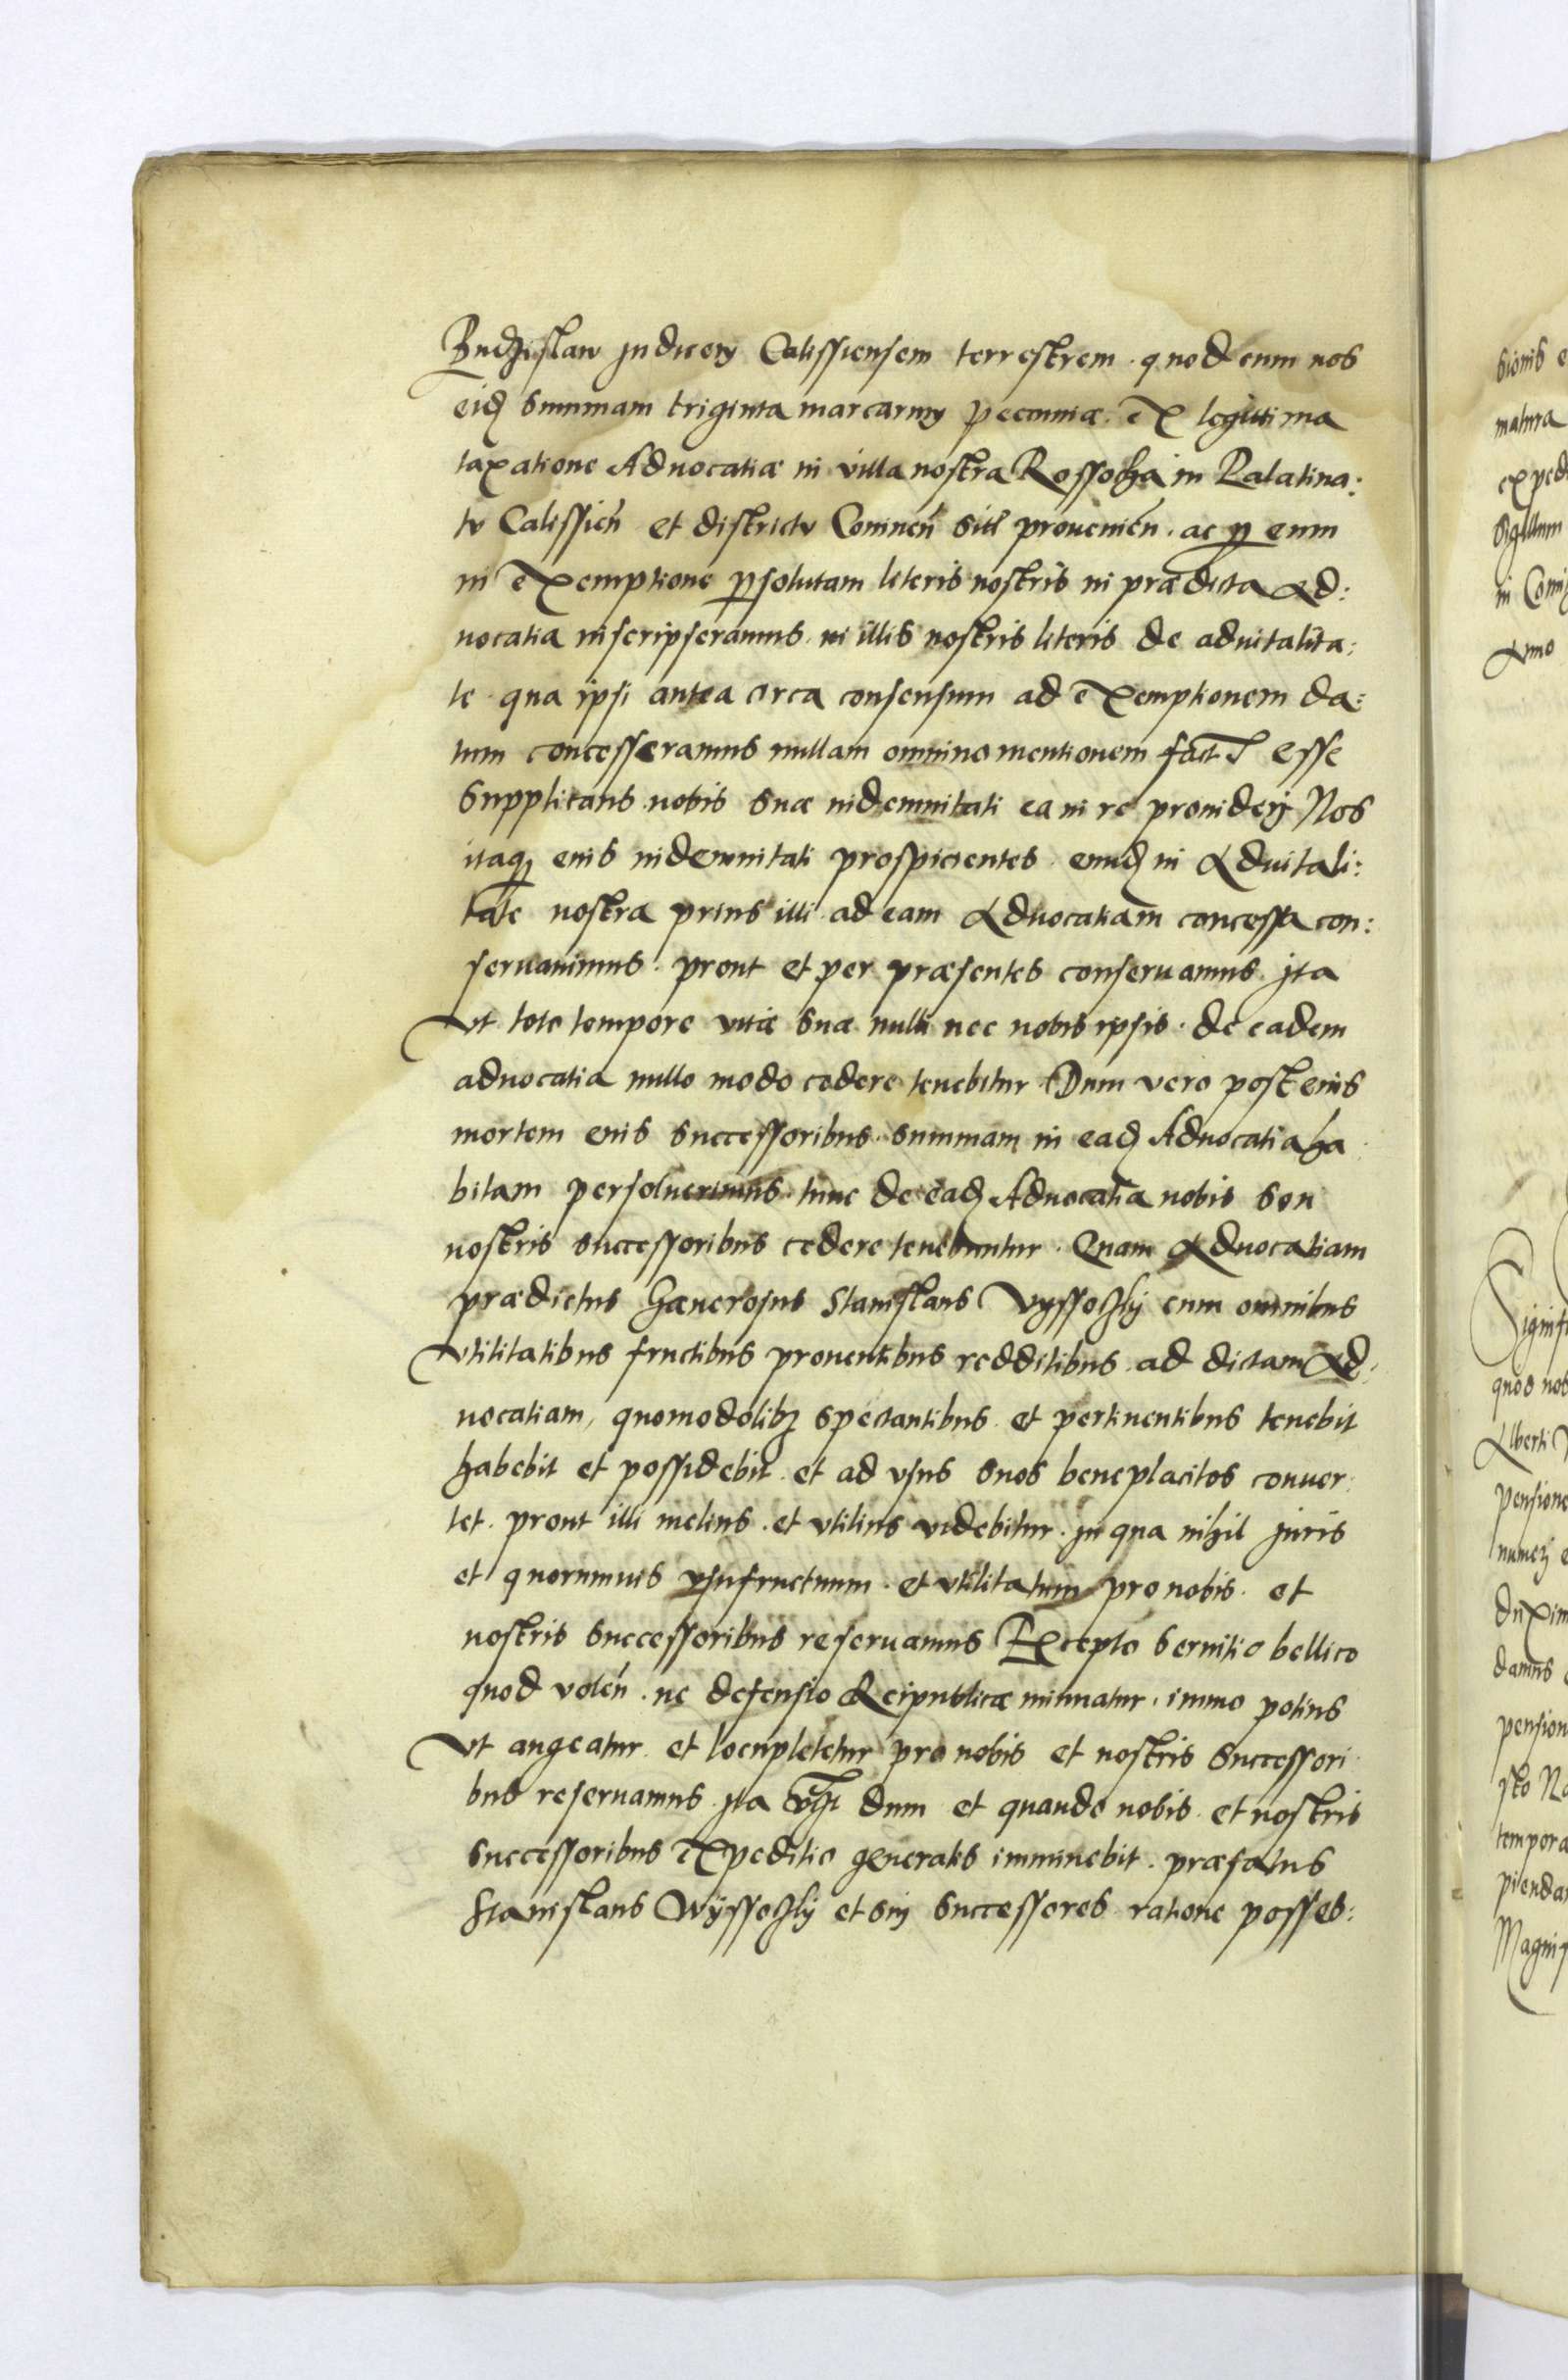 Budzislaw judicem Calissiensem terrestrem . quod cum nos
eidẽ summam triginta marcarum pecuniæ . ex legittima
taxatione Aduocatiæ in villa nostra Rossocha in Palatina:
tv Calissieñ et districtv Conineñ sitẽ prouenieñ . ac per eum
in exemptione persolutam literis nostris in prædicta Ad:
uocatia inscripseramus . in illis nostris literis de aduitalita:
te qua ipsi antea circa consensum ad exemptionem da:
tum concesseramus nullam omnino mentionem factã esse
Supplicans nobis suæ indemnitati ea in re prouideri Nos
itaq3 eius indemnitati prospicientes . eundẽ in Aduitali:
tate nostra prius illi ad eam Aduocatiam concessa con:
seruauimus . prout et per præsentes conseruamus . Jta
Vt toto tempore vitæ suæ nulli nec nobis ipsis . de eadem
aduocatia nullo modo cedere tenebitur Dum vero post eius
mortem eius successoribus . summam in eadẽ Aduocatia ha
bitam persoluerimus . tunc de eadẽ Aduocatia nobis seu
nostris successoribus cedere tenebuntur . Quam Aduocatiam
prædictus Generosus Stanislaus Vyssoczkÿ cum omnibus
Vtilitatibus fructibus prouentibus redditibus . ad dictam Ad:
uocatiam, quomodolib3 spectantibus . et pertinentibus tenebit
habebit et possidebit . et ad vsus suos beneplacitos conuer
tet . prout illi melius . et vtilius videbitur . Jn qua nihil juris
et quorumuis vsufructuum . et vtilitatum pro nobis . et
nostris successoribus reseruamus Excepto seruitio bellico
quod voleñ . ne defensio Reipublicæ minuatur . immo potius
Vt augeatur . et locupletetur pro nobis et nostris successori
bus reseruamus . Jta vt dum et quando nobis . et nostris
successoribus expeditio generalis imminebit . præfatus
Stanislaus Wÿssoczkÿ et sui successores ratione posses: